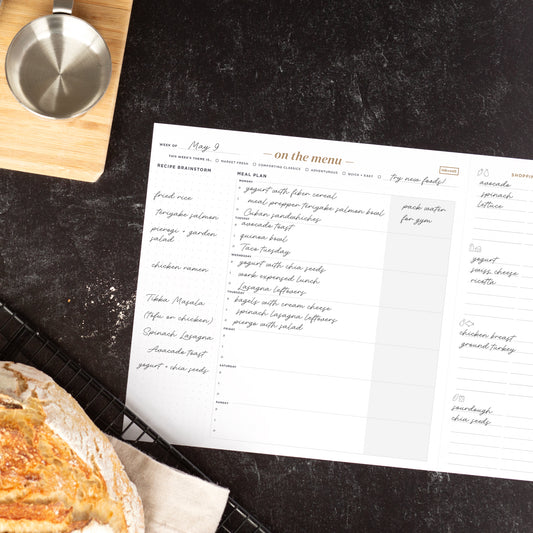 WEEK OF May 9
on the menu
THIS WEEK'S THEME IS...
MARKET FRESH
COMFORTING CLASSICS
ADVENTUROUS
QUICK + EASY
try new foods!
RECIPE BRAINSTORM
fried rice
teriyake salmon
pierogi + garden
salad
chicken ramen
Tikka Masala
(tofu or chicken)
Spinach Lasagna
Avacado toast
yogurt + chia seeds
MEAL PLAN
MONDAY
yogurt with fiber cereal
meal prepper teriyake salmon bowl
Cuban sandwhiches
TUESDAY
avocado toast
quinoa bowl
Taco tuesday
WEDNESDAY
yogurt with chia seeds
work expensed lunch
Lasagna leftovers
THURSDAY
bagels with cream cheese
spinach lasagna leftovers
piergo with salad
FRIDAY
SATURDAY
SUNDAY
pack water
for gym
SHOPPING
avocado
spinach
lettuce
yogurt
swiss cheese
ricotta
chicken breast
ground turkey
sourdough
chia seeds